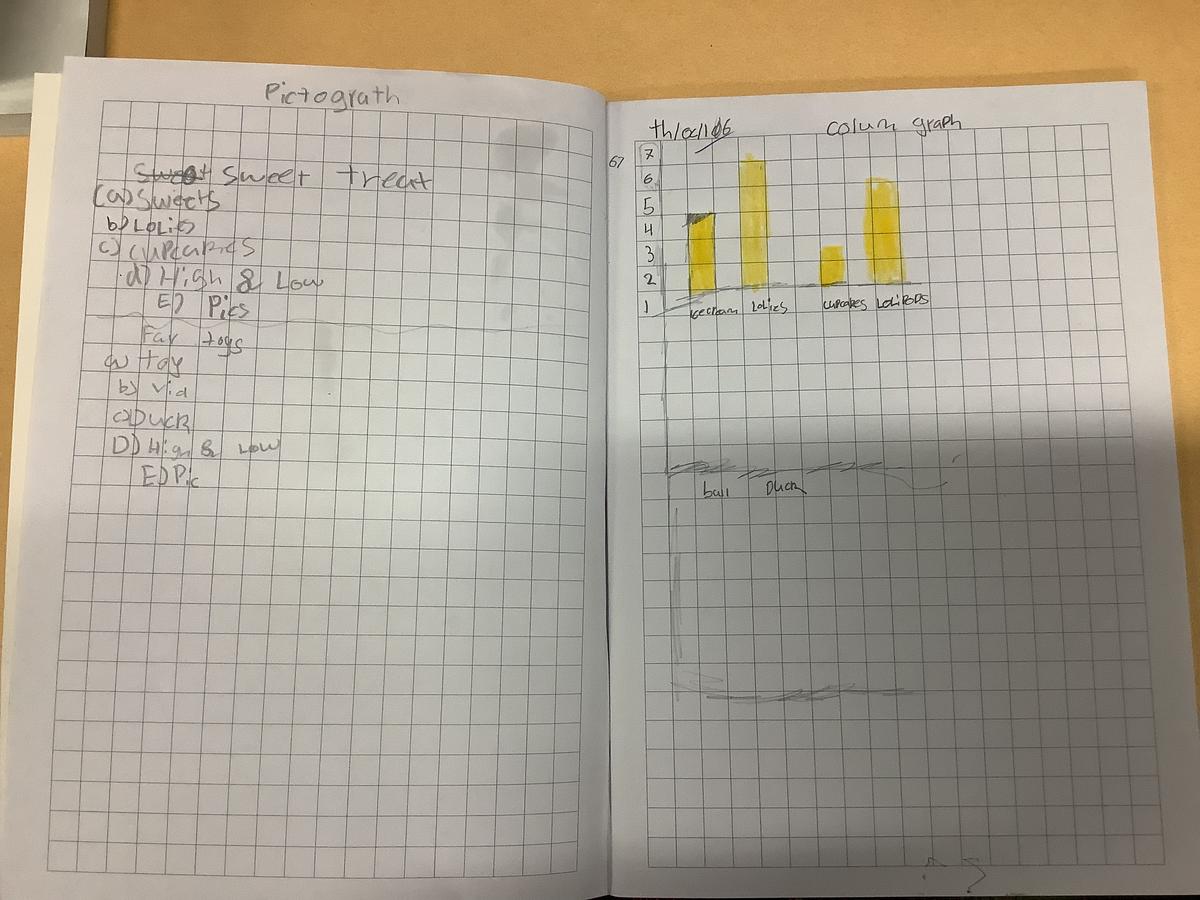 Pictograth
sweet treat
(a) Sweets
b) Lolies
c) cupcakes
d) High & Low
E) Pics
Fav toys
a) toy
b) vid
c) Duck
D) High & Low
E) Pic
colum graph
67
7
6
5
4
3
2
1
icecream Lolies cupcakes LoliPops
ball Duck